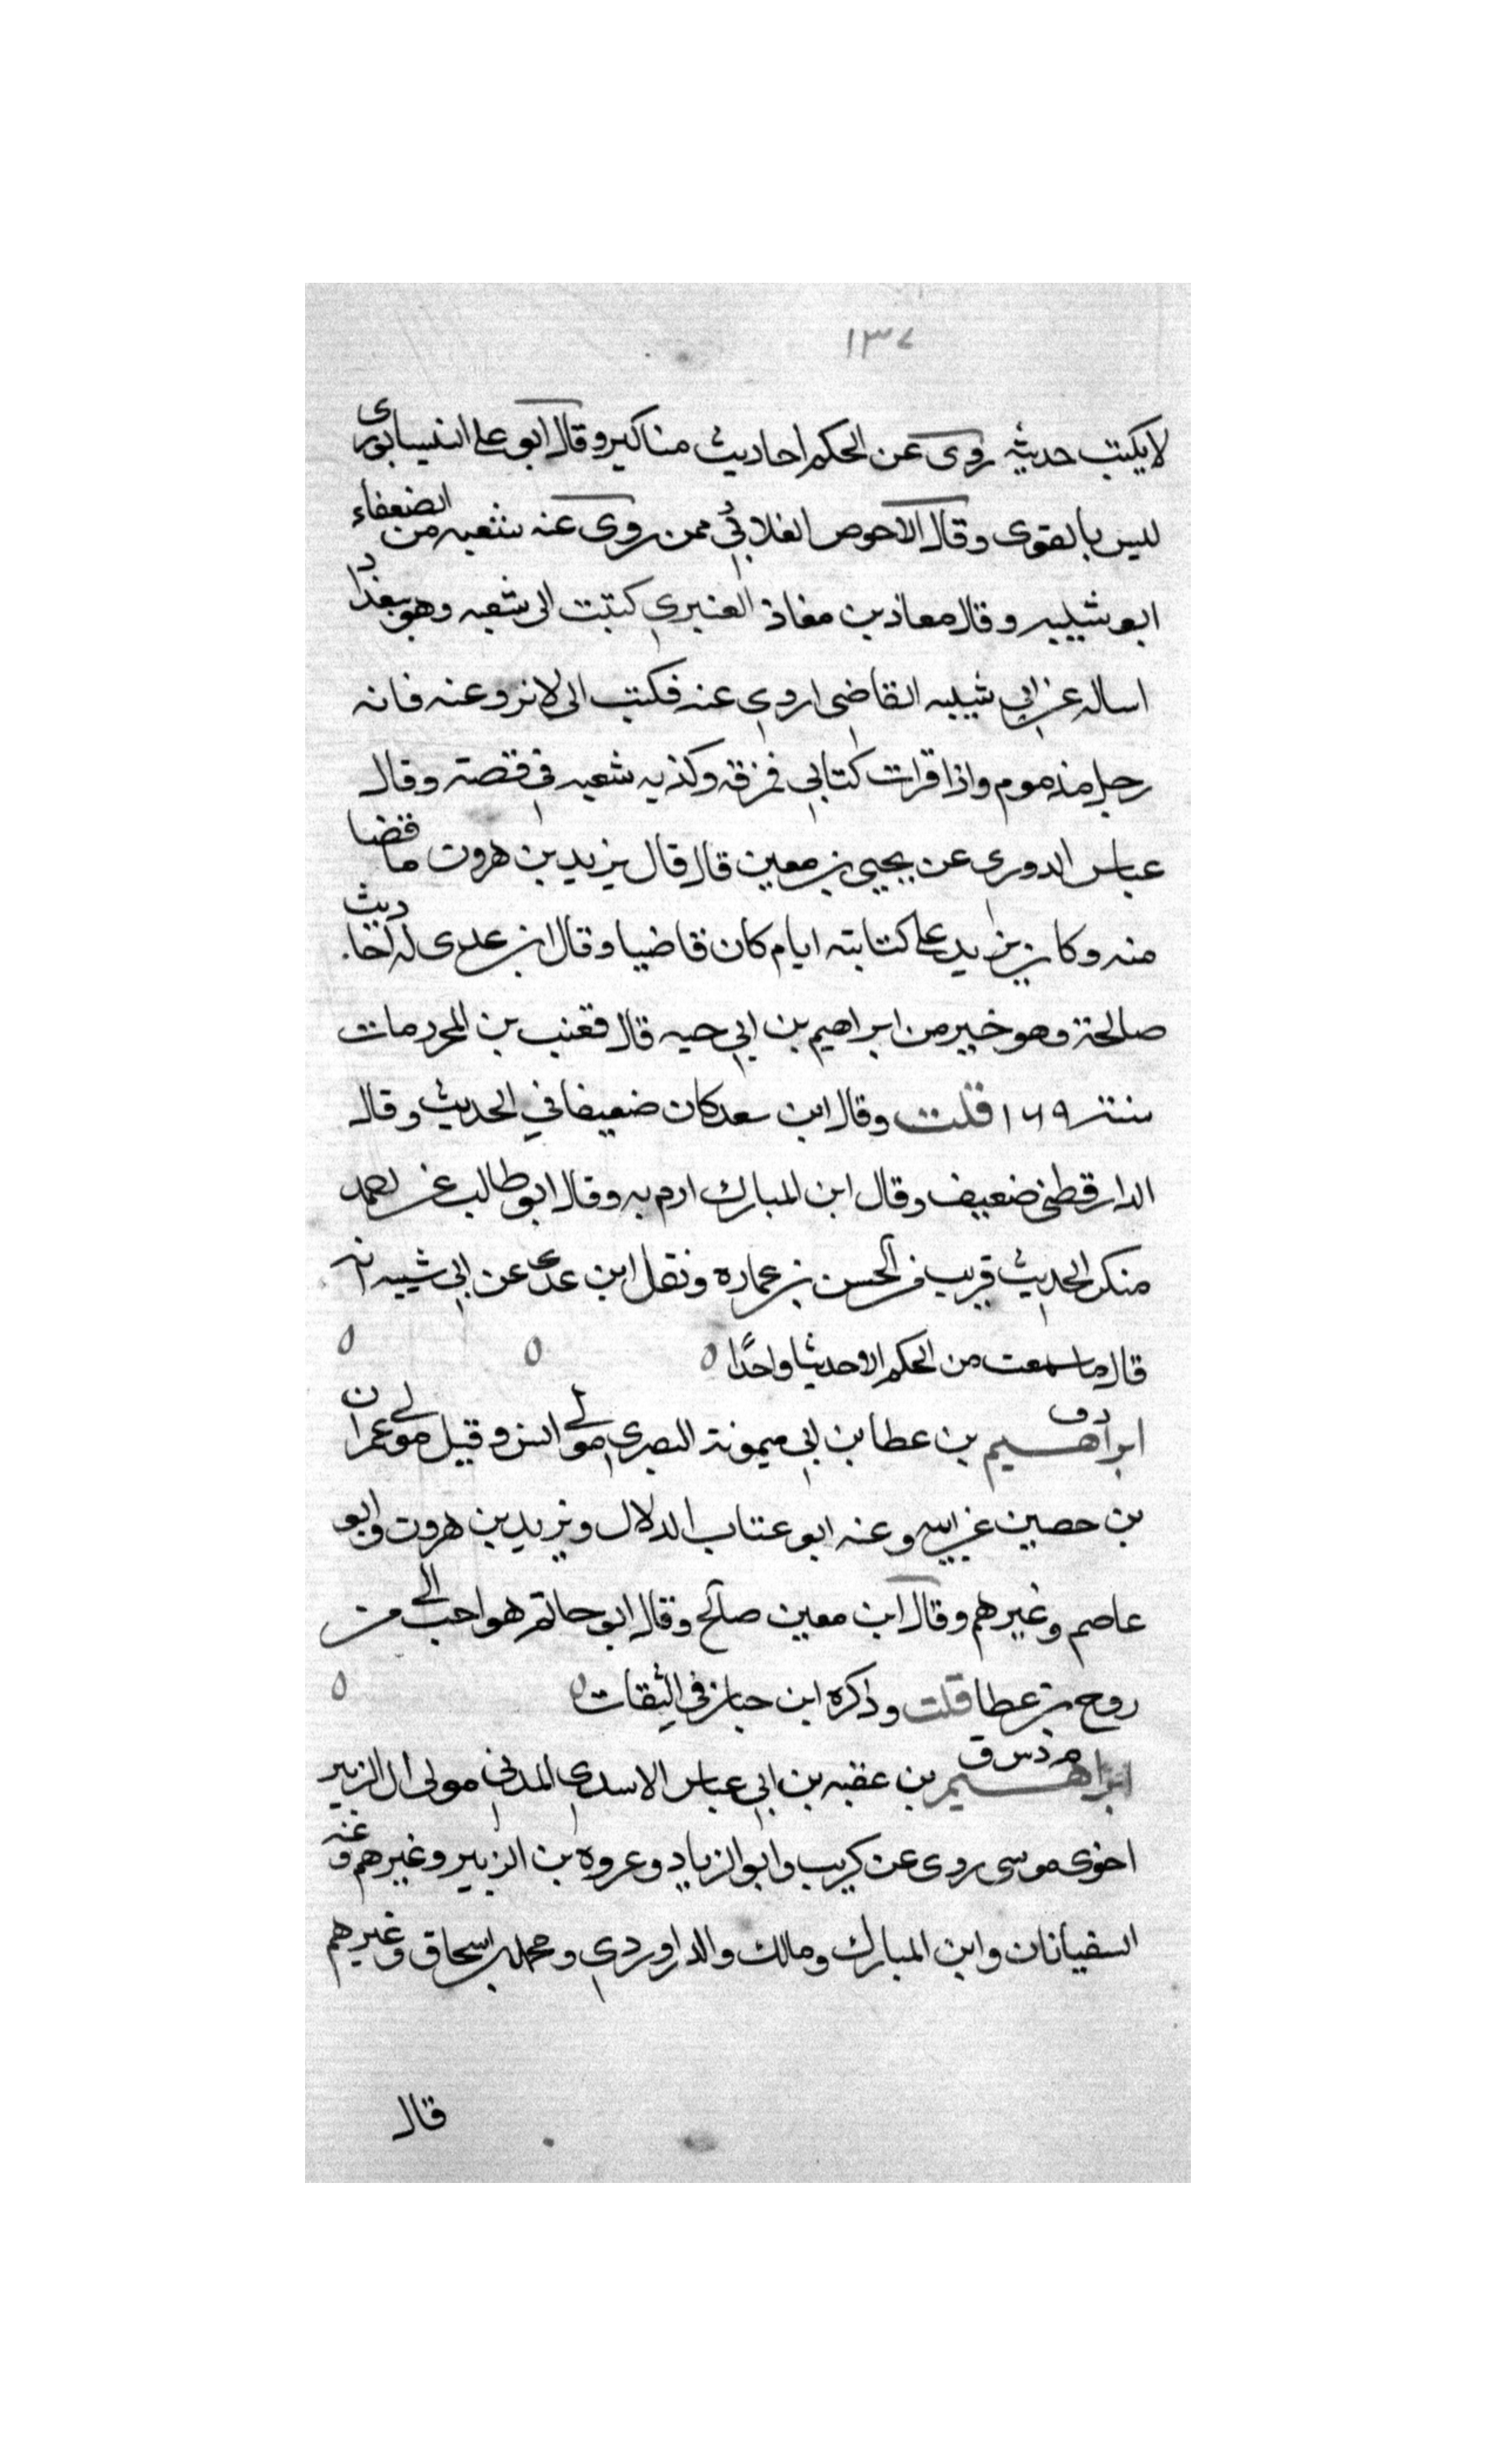 ١٣٧
لا يكتب حديثه روى عن الحكم احاديث مناكير وقال ابو علي النيسابورى
ليس بالقوى وقال الاحوص الغلابي ممن روى عنه شعبه من الضعفاء
ابو شيبه وقال معاذ بن معاذ العنبري كتبت الى شعبه وهو ببغداد
اساله عن ابي شيبه القاضي اروي عنه فكتب الى لا ترو عنه فانه
رجل مذموم واذا قرات كتابي فمزقه وكذبه شعبه في قصة وقال
عباس الدوري عن يحيى بن معين قال قال يزيد بن هرون ما قضا
منه وكان يزيد على كتابته ايام كان قاضيا وقال ابن عدى له احاديث
صالحة وهو خير من ابراهيم بن ابي حيه قال قعنب بن المحرر مات
سنة ١٦٩ قلت وقال ابن سعد كان ضعيفا في الحديث وقال
الدارقطني ضعيف وقال ابن المبارك ارم به وقال ابو طالب عن احمد
منكر الحديث قريب من الحسن بن عماره ونقل ابن عدى عن ابي شيبه انه
قال ما سمعت من الحكم الا حديثا واحدًا ٥ ٥ ٥
د ق
ابراهيم بن عطا بن ابي ميمونة البصري مولى انس وقيل مولى عمران
بن حصين عن ابيه وعنه ابو عتاب الدلال ويزيد بن هرون وابو
عاصم وغيرهم وقال ابن معين صالح وقال ابو حاتم هو احب الى من
روح بن عطا قلت وذكره ابن حبان في الثقات ٥ ٥
م د س ق
ابراهيم بن عقبه بن ابي عباس الاسدي المدني مولى ال الزبير
اخوى موسى روى عن كريب وابو الزياد وعروه بن الزبير وغيرهم وعنه
السفيانان وابن المبارك ومالك والدراوردي ومحمد بن اسحاق وغيرهم
قال